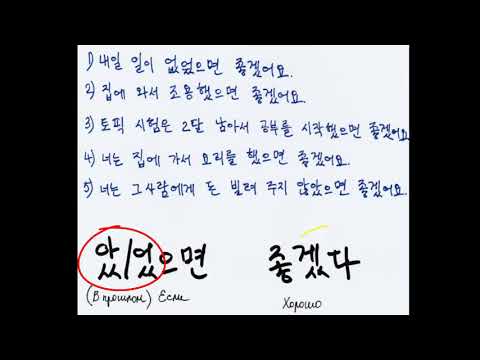 1) 내일 일이 없었으면 좋겠어요.
2) 집에 와서 조용했으면 좋겠어요.
3) 토픽 시험은 2달 남아서 공부를 시작했으면 좋겠어요.
4) 너는 집에 가서 요리를 했으면 좋겠어요.
5) 너는 그사람에게 돈 빌려 주지 않았으면 좋겠어요.
았/었으면 좋겠다
(В прошлом) Если Хорошо